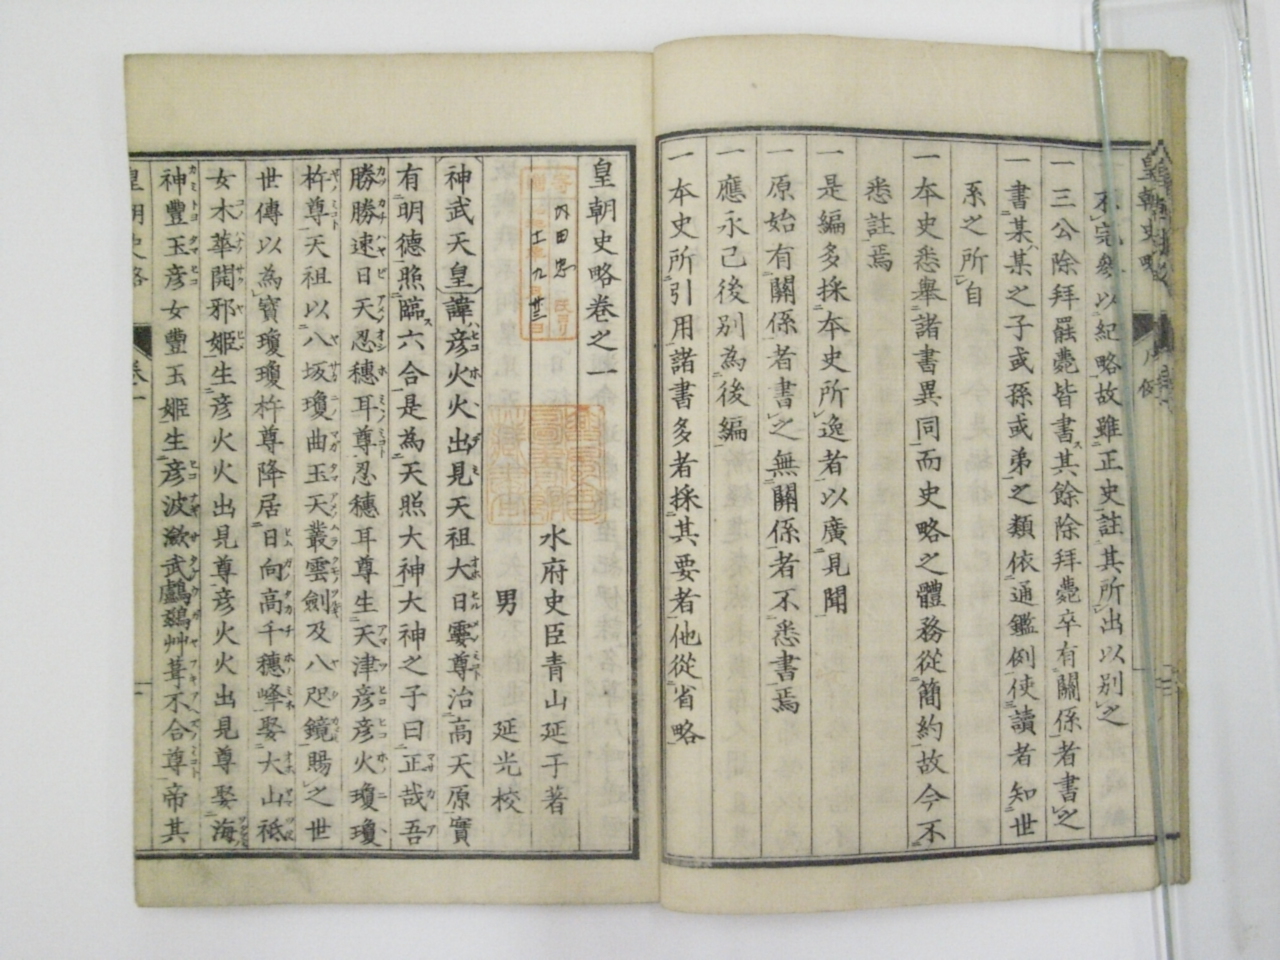 不完參以紀略故雖正史註其所出以別之
一三公除拜罷薨皆書其餘除拜薨卒有關係者書之
一書某某之子或孫或弟之類依通鑑例使讀者知世
系之所自
一本史悉舉諸書異同而史略之體務從簡約故今不
悉註焉
一是編多採本史所逸者以廣見聞
一原始有關係者書之無關係者不悉書焉
一應永己後別為後編
一本史所引用諸書多者採其要者他從省略
皇朝史略卷之一
水府史臣青山延于著
男 延光校
神武天皇諱彦火火出見天祖大日孁尊治高天原實
有明德照臨六合是為天照大神大神之子曰正哉吾
勝勝速日天忍穗耳尊忍穗耳尊生天津彦彦火瓊瓊
杵尊天祖以八坂瓊曲玉天叢雲劍及八咫鏡賜之世
世傳以為寶瓊瓊杵尊降居日向高千穗峰娶大山祇
女木華開邪姬生彦火火出見尊彦火火出見尊娶海
神豐玉彦女豐玉姬生彦波瀲武鸕鷀艸葺不合尊帝其
皇朝史略 卷一